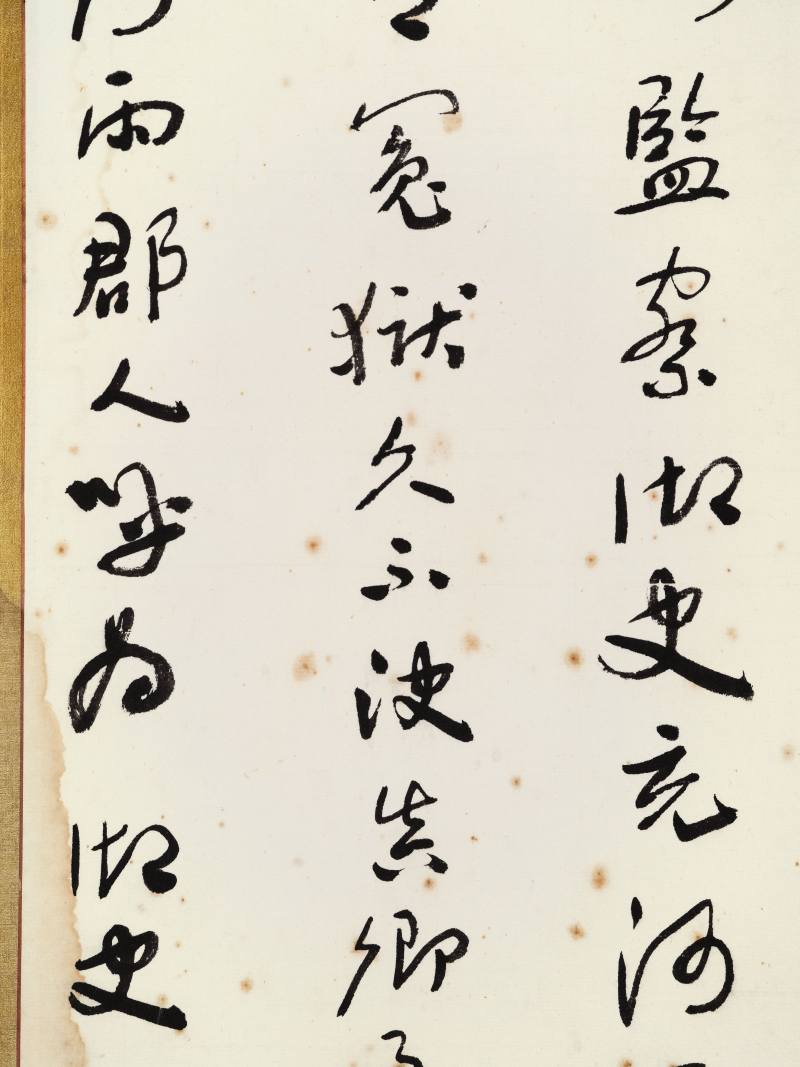 監察御史充河
冤獄久不決真卿
雨郡人呼為御史